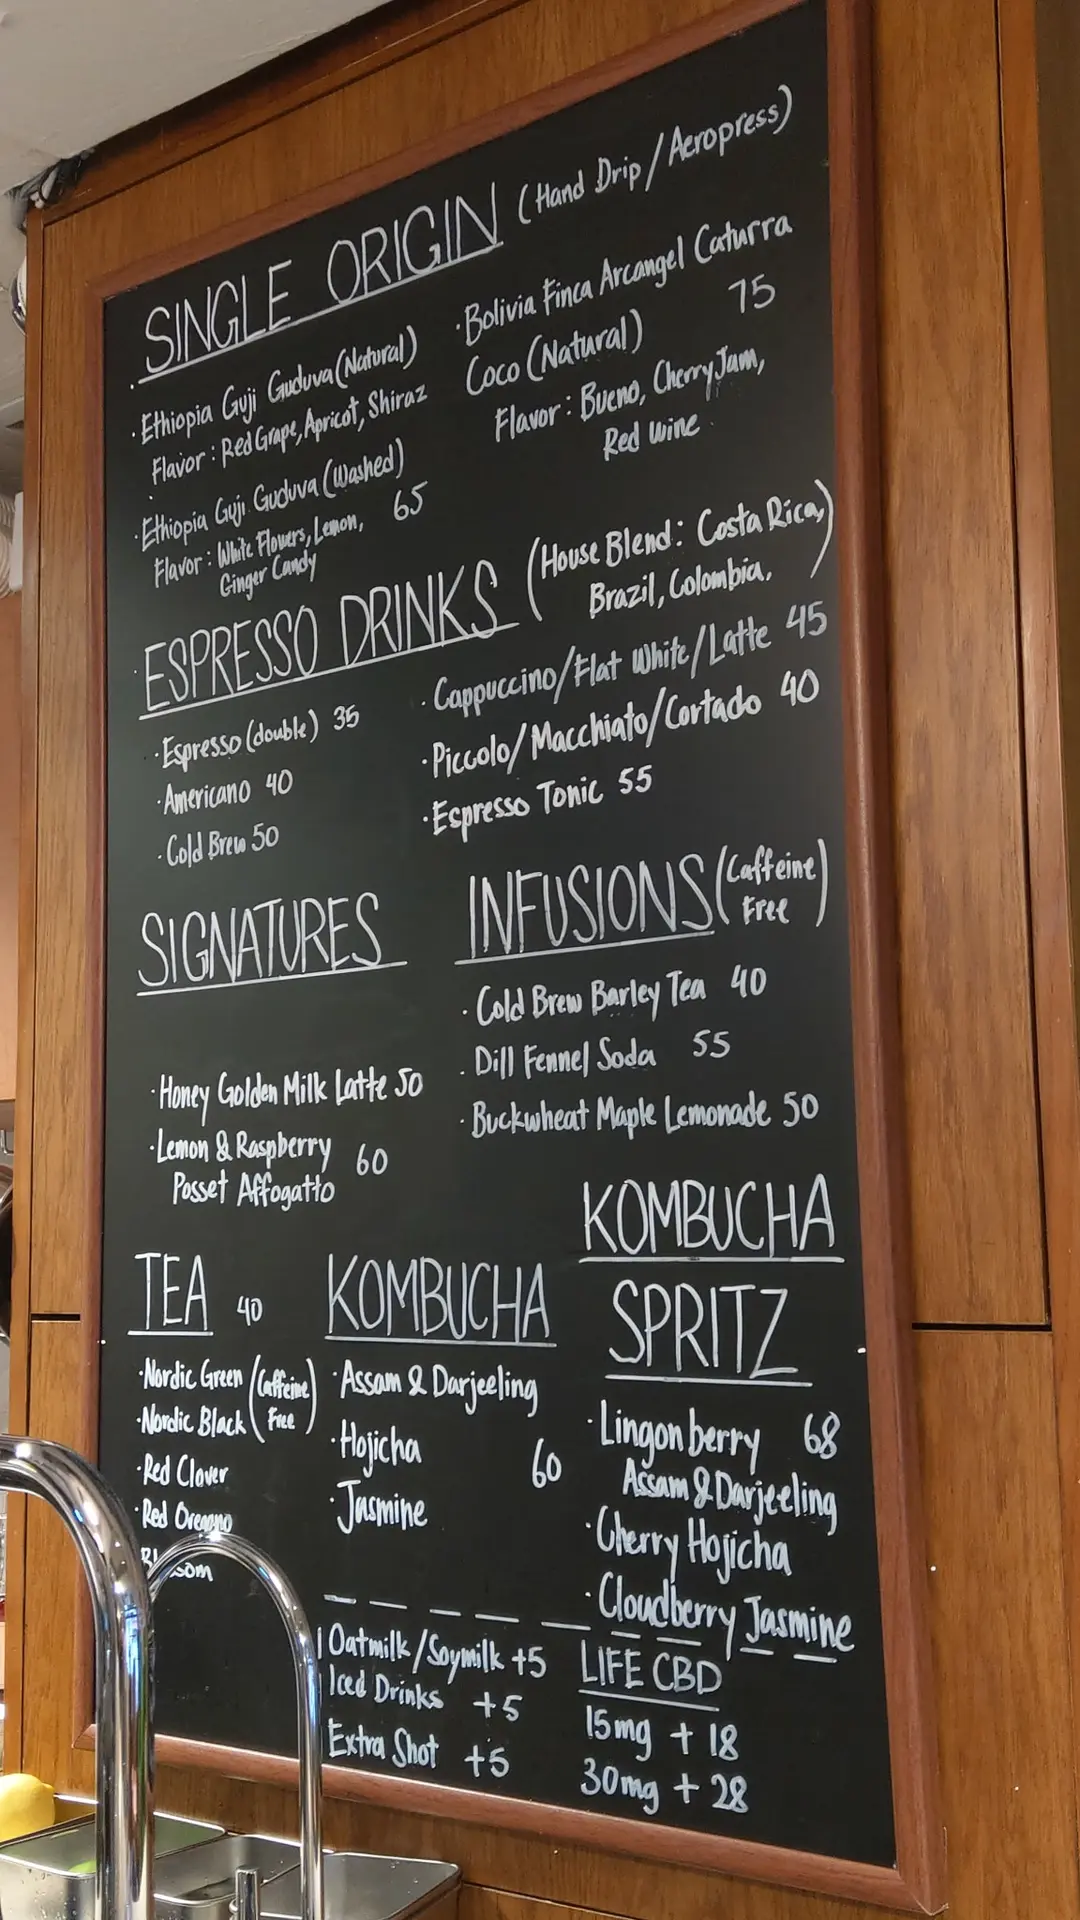 SINGLE ORIGIN (Hand Drip / Aeropress)
· Ethiopia Guji Guduva (Natural)
Flavor : Red Grape, Apricot, Shiraz
· Ethiopia Guji Guduva (Washed)
Flavor : White Flowers, Lemon, 65
Ginger Candy
· Bolivia Finca Arcangel Caturra
Coco (Natural) 75
Flavor : Bueno, Cherry Jam,
Red Wine
ESPRESSO DRINKS (House Blend : Costa Rica,
Brazil, Colombia, )
· Espresso (double) 35
· Americano 40
· Cold Brew 50
· Cappuccino/Flat White/Latte 45
· Piccolo/Macchiato/Cortado 40
· Espresso Tonic 55
SIGNATURES
· Honey Golden Milk Latte 50
· Lemon & Raspberry 60
Posset Affogatto
INFUSIONS (Caffeine
Free)
· Cold Brew Barley Tea 40
· Dill Fennel Soda 55
· Buckwheat Maple Lemonade 50
TEA 40
· Nordic Green (Caffeine
· Nordic Black Free)
· Red Clover
· Red Oregano
KOMBUCHA
· Assam & Darjeeling
· Hojicha 60
· Jasmine
KOMBUCHA
SPRITZ
· Lingonberry 68
Assam & Darjeeling
· Cherry Hojicha
· Cloudberry Jasmine
Oatmilk/Soymilk +5
Iced Drinks +5
Extra Shot +5
LIFE CBD
15mg + 18
30mg + 28